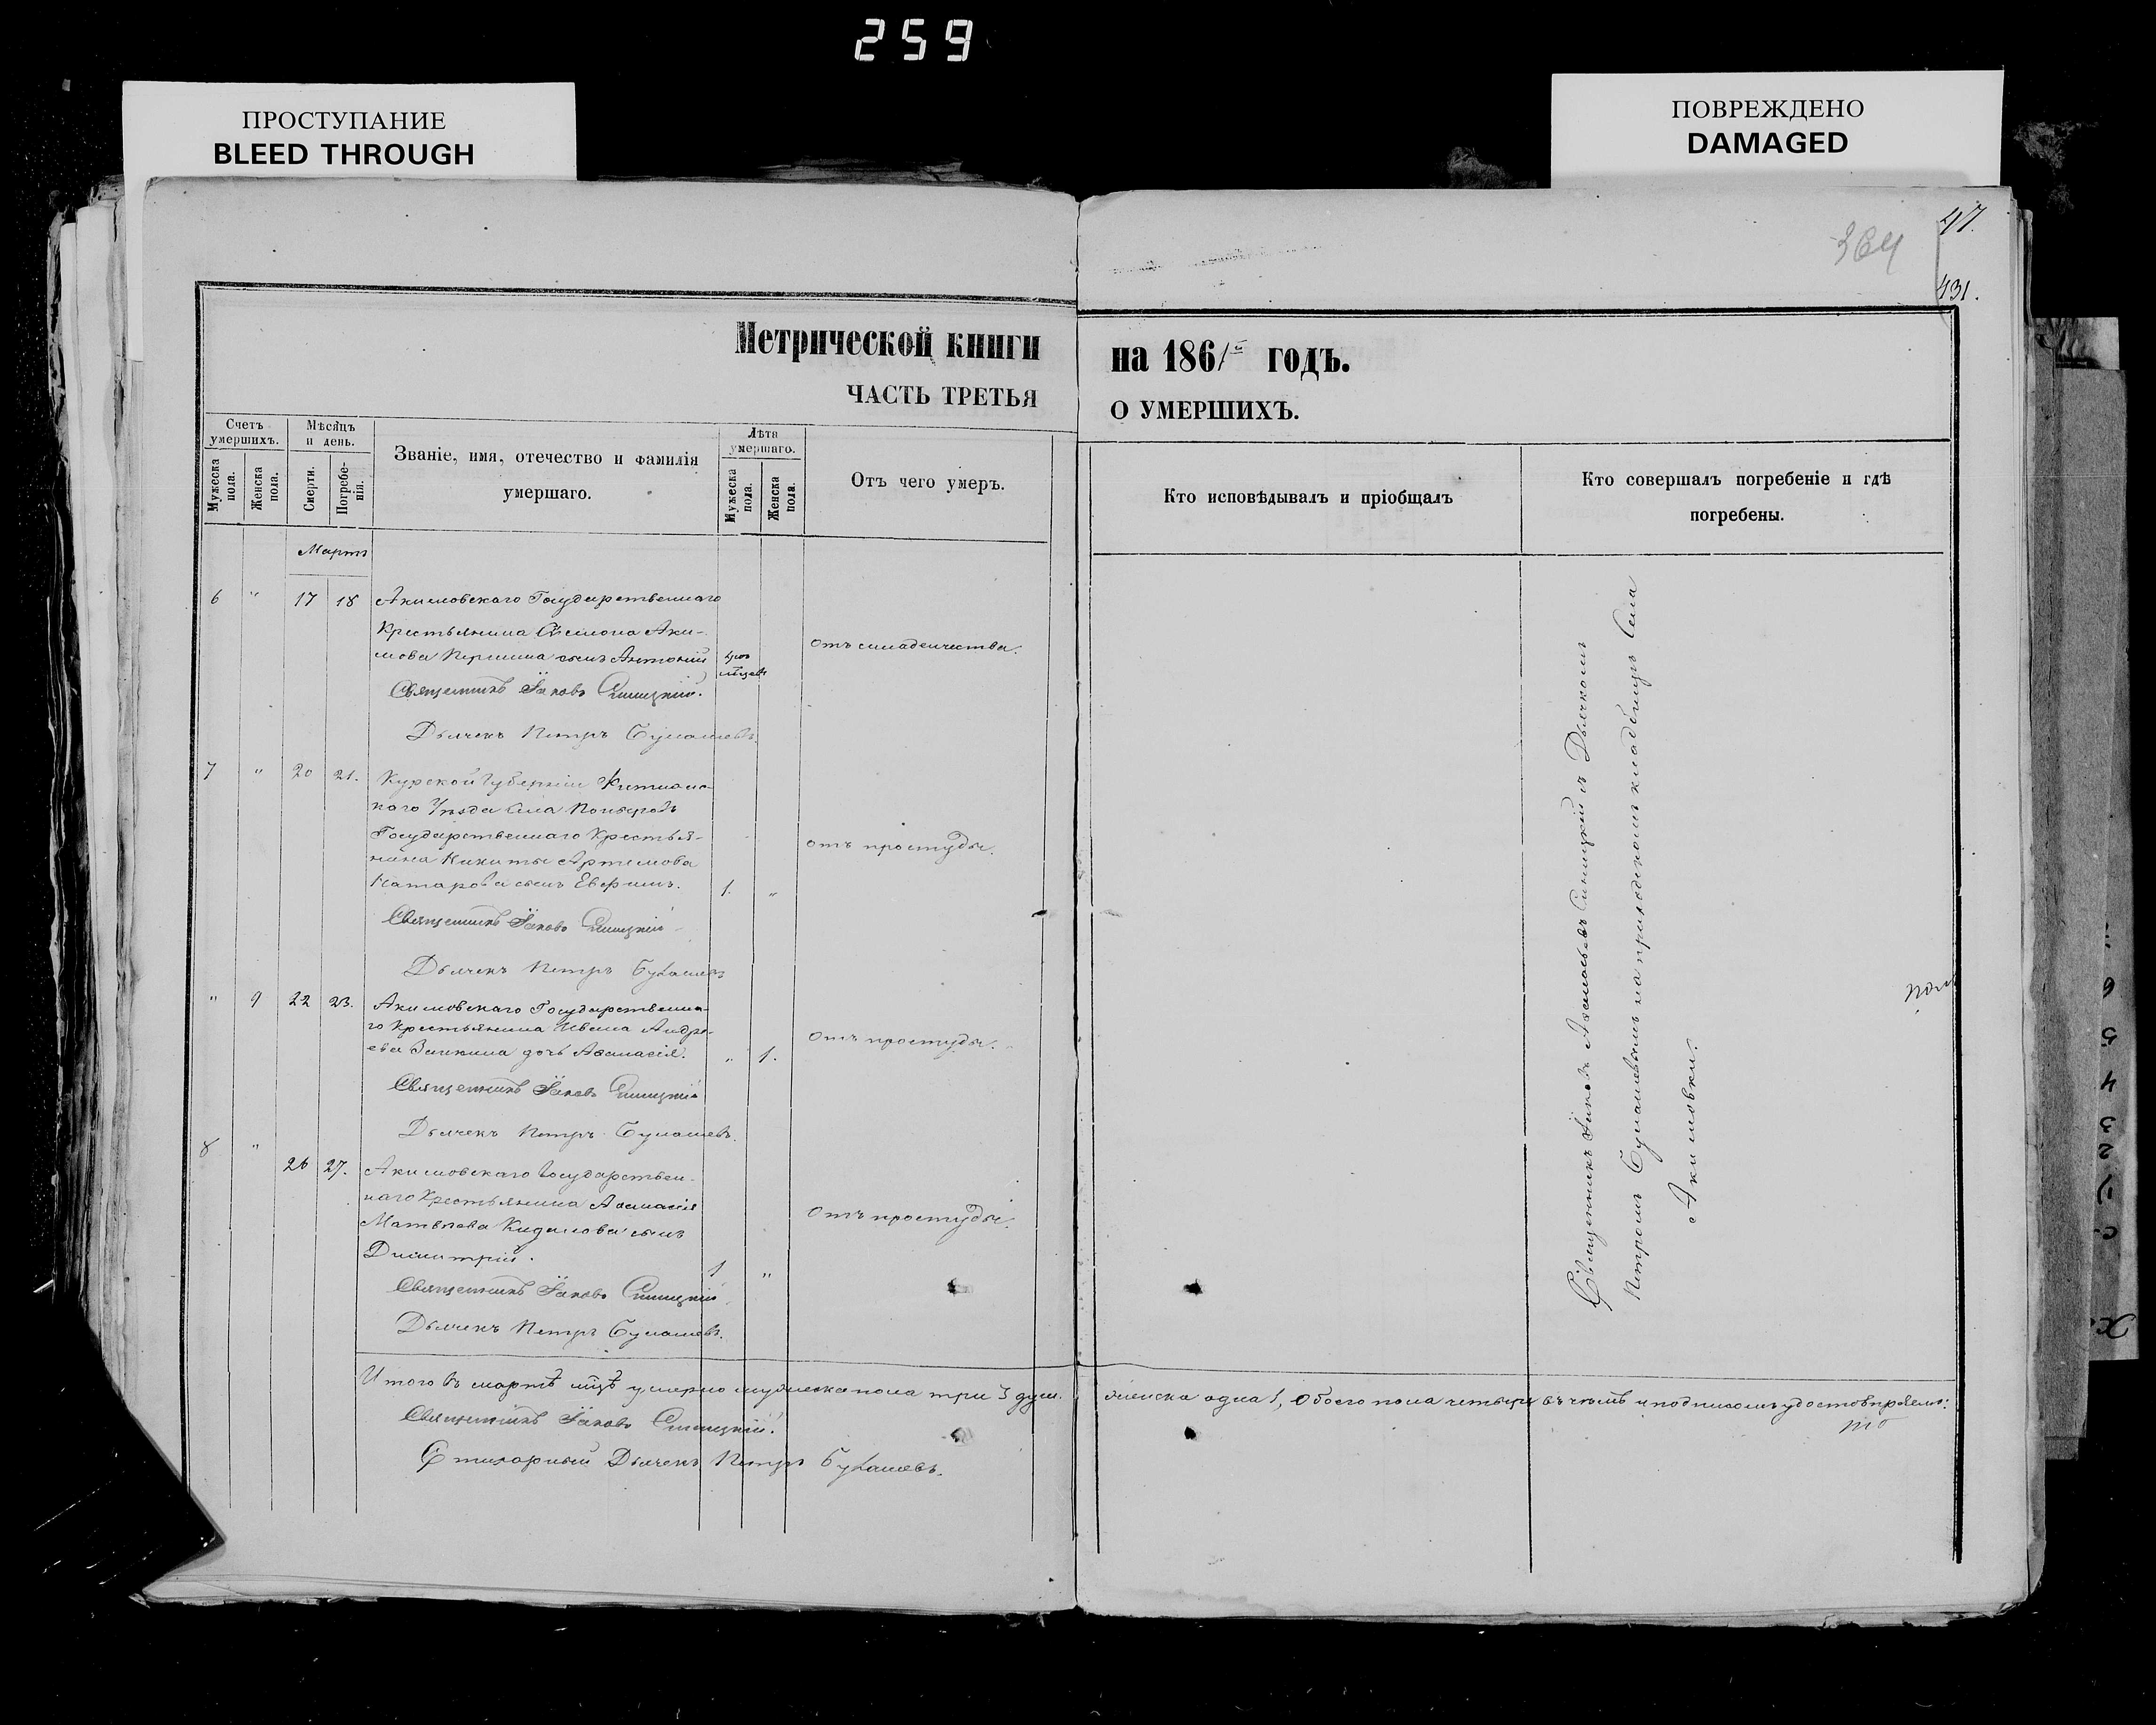 259
ПРОСТУПАНИЕ
BLEED THROUGH
ПОВРЕЖДЕНО
DAMAGED
47.
364
431.
Метрической книги на 1861й годъ.
ЧАСТЬ ТРЕТЬЯ О УМЕРШИХЪ.
Счетъ умершихъ.
Мужеска пола.
Женска пола.
Мѣсяцъ и день.
Смерти.
Погребе-
нія.
Званіе, имя, отечество и фамилія
умершаго.
Лѣта умершаго.
Мужеска пола.
Женска пола.
Отъ чего умеръ.
Кто исповѣдывалъ и пріобщалъ
Кто совершалъ погребеніе и гдѣ
погребены.
Мартъ
6 " 17 18 Акимовскаго Государственнаго
Крестьянина Симона Аки-
мова сынъ Антоній
отъ младенчества.
Священникъ Іаковъ Синицкій.
Дьячекъ Петръ Букашевъ.
7 " 20 21. Курской Губерніи
Уѣзда Села
Государственнаго Крестья-
нина Никиты Артемова
сынъ 1. "
отъ простуды.
Священникъ Іаковъ Синицкій
Дьячекъ Петръ Букашевъ
" 9 22 23. Акимовскаго Государственна-
го Крестьянина Ивана Андре-
ева Заикина дочь Афанасія. " 1.
отъ простуды.
Священникъ Іаковъ Синицкій
Дьячекъ Петръ Букашевъ.
8 " 26 27. Акимовскаго Государствен-
наго Крестьянина Афанасія
Матвѣева сынъ
Димитрій. 1 "
отъ простуды.
Священникъ Іаковъ Синицкій
Дьячекъ Петръ Букашевъ.
Священникъ Іаковъ Синицкій съ Дьячкомъ
Петромъ Букашевымъ на приходскомъ кладбищѣ Села
Акимовки.
Итого въ мартѣ мцѣ умерло мужеска пола три 3 душ. женска одна 1, обоего пола четыре въ чемъ и подписомъ удостовѣряемъ:
Священникъ Іаковъ Синицкій.
Стихарный Дьячекъ Петръ Букашевъ.